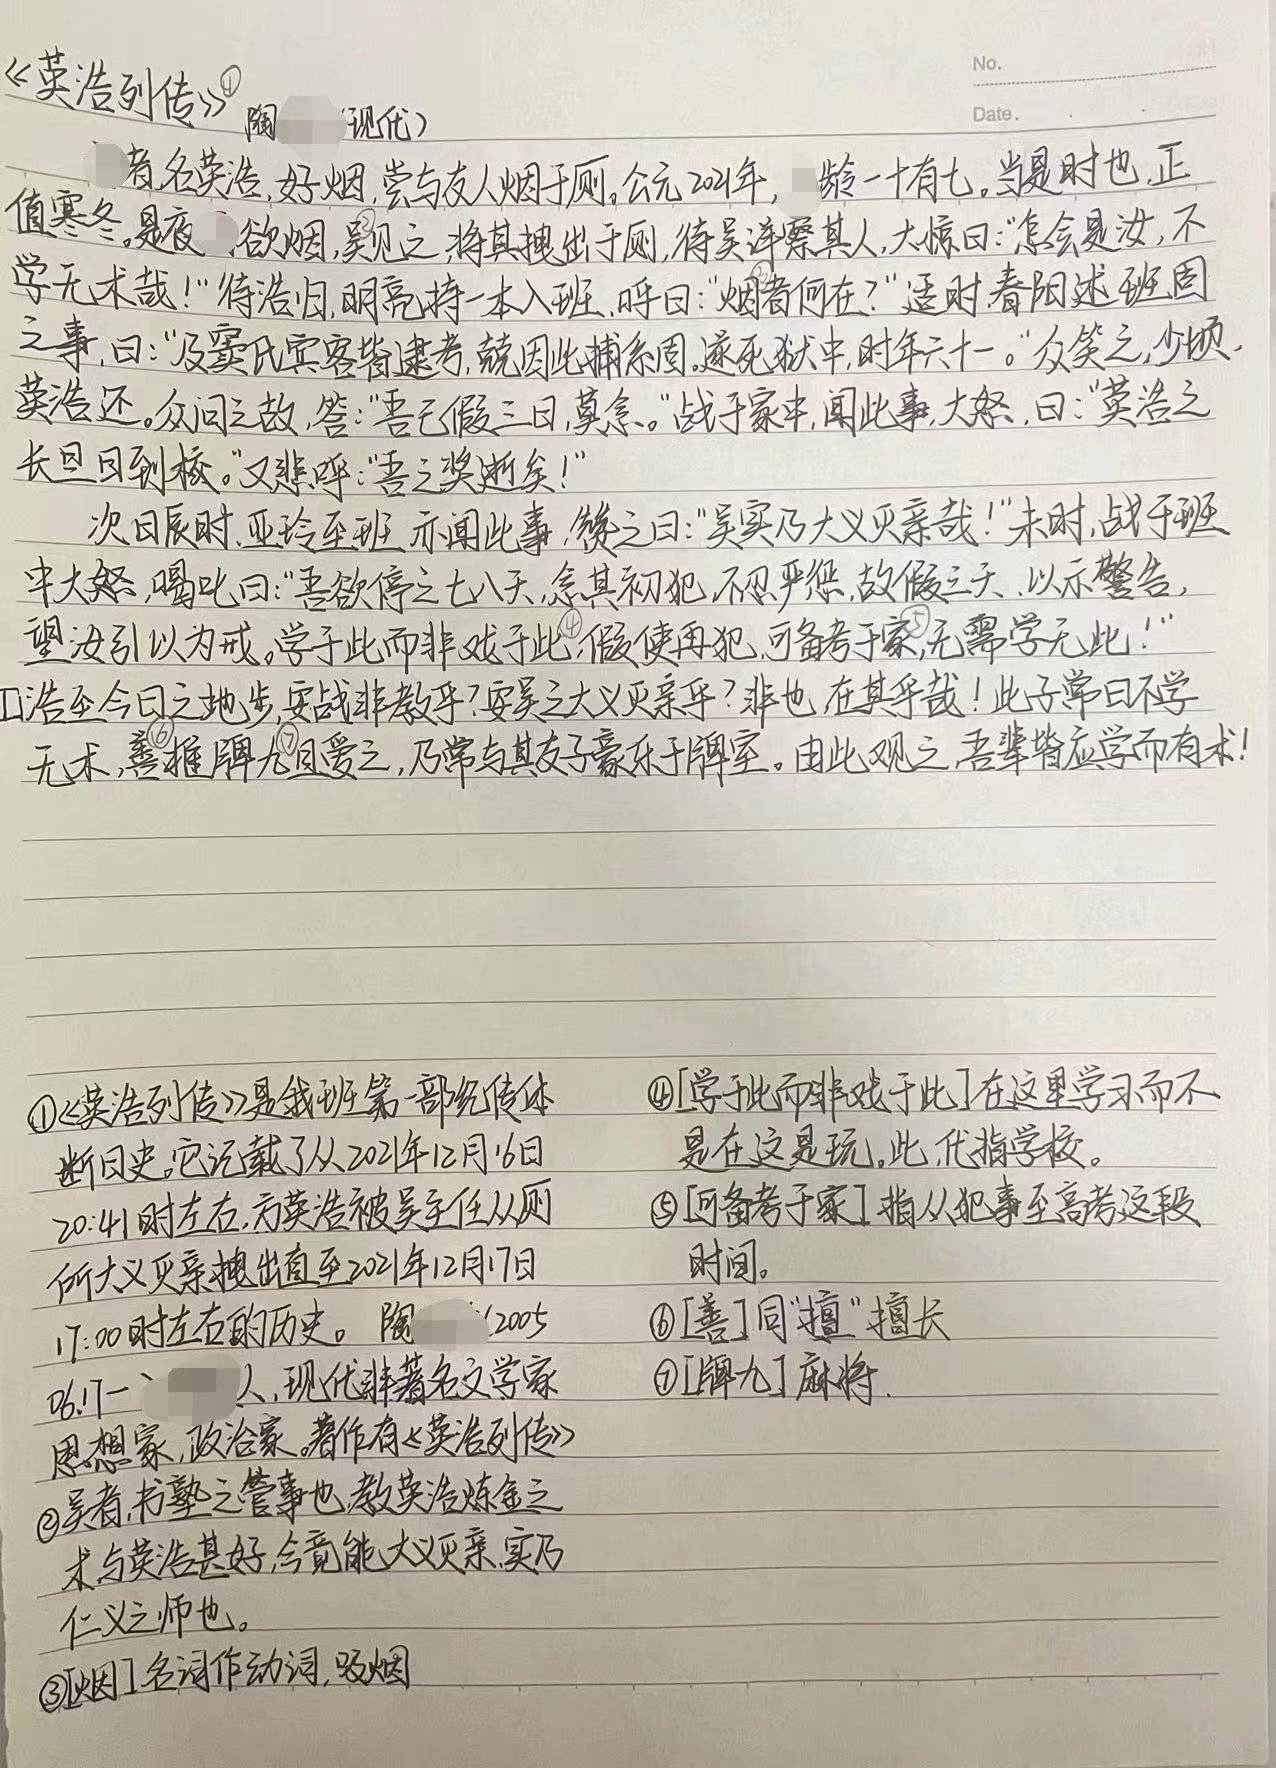 No.
《英浩列传》①
Date.
陶 (现代)
者名英浩,好烟,尝与友人烟于厕。公元2021年, 龄一十有七。当是时也,正
值寒冬。是夜 欲烟,吴②见之,将其拽出于厕,待吴详察其人,大惊曰:“怎会是汝,不
学无术哉!”待浩归,明亮持一本入班,呼曰:“烟③者何在?”适时春阳述班固
之事,曰:“及窦氏宾客皆逮考,兢因此捕系固。遂死狱中,时年六十一。”众笑之,少顷,
英浩还。众问之故,答:“吾已假三日,莫念。”战于家中,闻此事,大怒,曰:“英浩之
长旦日到校。”又悲呼:“吾之奖逝矣!”
次日辰时,亚玲至班,亦闻此事,赞之曰:“吴实乃大义灭亲哉!”未时,战于班
中大怒,喝叱曰:“吾欲停之七八天,念其初犯,不忍严惩,故假三天,以示警告,
望汝引以为戒。学于此而非戏于此④,假使再犯,可备考于家⑤,无需学无此!”
浩至今日之地步,安战非教乎?安吴之大义灭亲乎?非也,在其乎哉!此子常日不学
无术,善⑥推牌九⑦且爱之,乃常与其友子豪乐于牌室。由此观之,吾辈皆应学而有术!
①《英浩列传》是我班第一部纪传体
断日史。它记载了从2021年12月16日
20:41时左右,方英浩被吴主任从厕
所大义灭亲拽出直至2021年12月17日
17:00时左右的历史。 陶 (2005
06.17— 人,现代非著名文学家
思想家,政治家。著作有《英浩列传》
②吴者,书塾之管事也,教英浩炼金之
术,与英浩甚好,今竟能大义灭亲,实乃
仁义之师也。
③[烟]名词作动词,吸烟
④[学于此而非戏于此]在这里学习而不
是在这是玩。此,代指学校。
⑤[可备考于家]指从犯事至高考这段
时间。
⑥[善]同“擅”擅长
⑦[牌九]麻将.